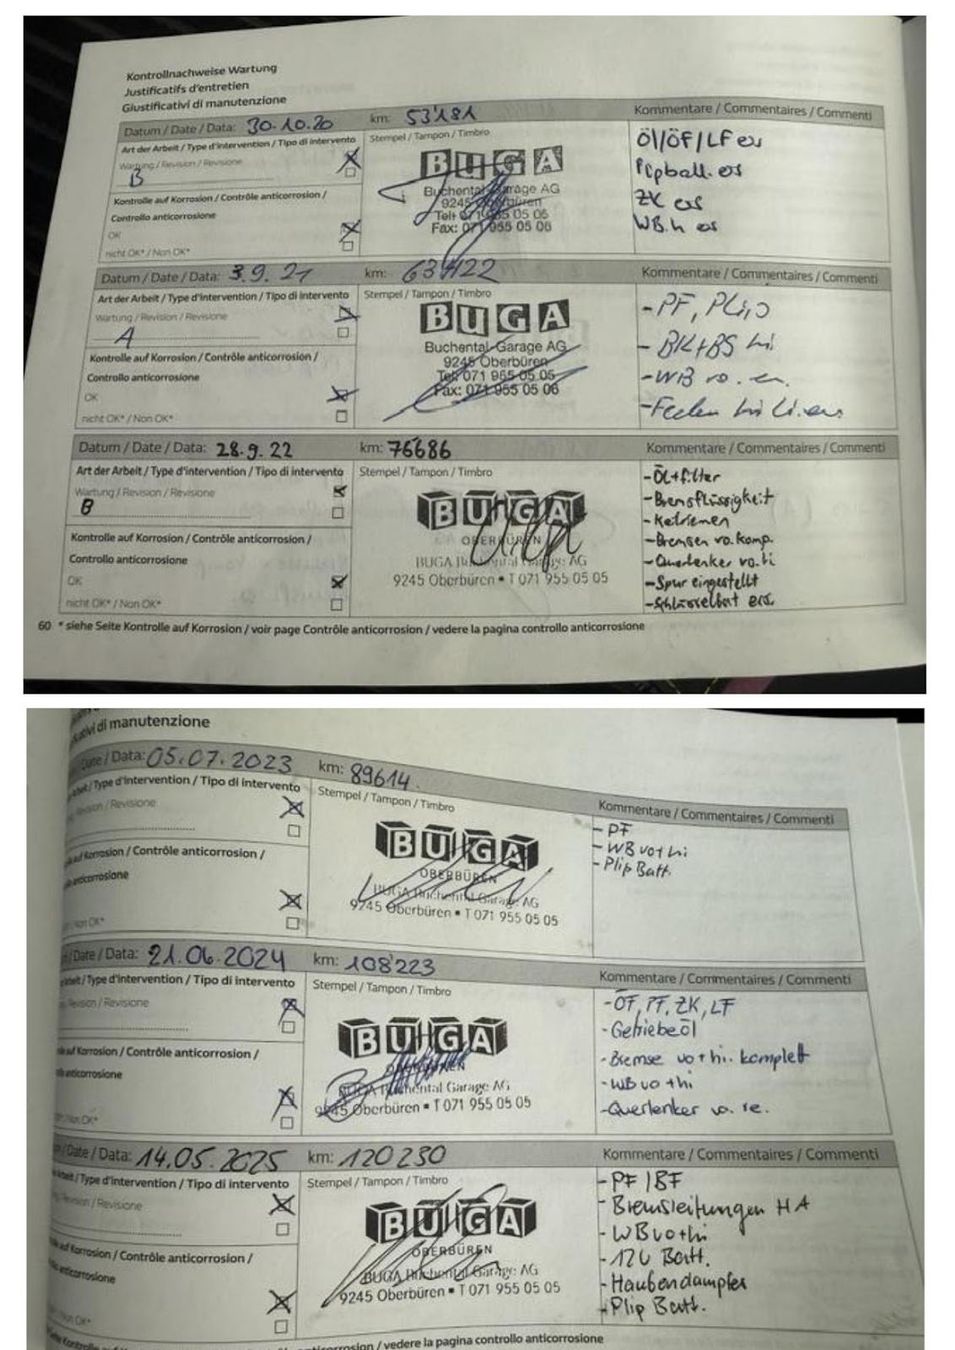 Kontrollnachweise Wartung
Justificatifs d'entretien
Giustificativi di manutenzione
Datum / Date / Data: 30.10.20 km: 53'181 Kommentare / Commentaires / Commenti
Art der Arbeit / Type d'intervention / Tipo di intervento Stempel / Tampon / Timbro
Wartung / Revision / Revisione
B
Kontrolle auf Korrosion / Contrôle anticorrosion /
Controllo anticorrosione
OK
nicht OK* / Non OK*
BUGA
Buchental-Garage AG
9245 Oberbüren
Tel: 071 955 05 05
Fax: 071 955 05 06
Öl/ÖF/LF ers
ZK ers
WB.h ers
Datum / Date / Data: 3.9.21 km: Kommentare / Commentaires / Commenti
Art der Arbeit / Type d'intervention / Tipo di intervento Stempel / Tampon / Timbro
Wartung / Revision / Revisione
A
Kontrolle auf Korrosion / Contrôle anticorrosion /
Controllo anticorrosione
OK
nicht OK* / Non OK*
BUGA
Buchental-Garage AG
9245 Oberbüren
Tel: 071 955 05 05
Fax: 071 955 05 06
- PF,
- BK+BS hi
- WB vo.
- hi li. ers
Datum / Date / Data: 28.9.22 km: 76686 Kommentare / Commentaires / Commenti
Art der Arbeit / Type d'intervention / Tipo di intervento Stempel / Tampon / Timbro
Wartung / Revision / Revisione
B
Kontrolle auf Korrosion / Contrôle anticorrosion /
Controllo anticorrosione
OK
nicht OK* / Non OK*
BUGA
OBERBÜREN
BUGA Buchental Garage AG
9245 Oberbüren • T 071 955 05 05
- Öl+filter
- Bremsflüssigkeit
- Keilriemen
- Bremsen vo. komp.
- Querlenker vo. li
- Spur eingestellt
- Schlüsselbat ers.
60 * siehe Seite Kontrolle auf Korrosion / voir page Contrôle anticorrosion / vedere la pagina controllo anticorrosione
di manutenzione
Date / Data: 05.07.2023 km: 89614
/ Type d'intervention / Tipo di intervento Stempel / Tampon / Timbro Kommentare / Commentaires / Commenti
Revision / Revisione
auf Korrosion / Contrôle anticorrosion /
anticorrosione
/ Non OK*
BUGA
OBERBÜREN
BUGA Buchental Garage AG
9245 Oberbüren • T 071 955 05 05
- PF
- WB vo+hi
- Plip Batt.
/ Date / Data: 21.06.2024 km: 108'223 Kommentare / Commentaires / Commenti
/ Type d'intervention / Tipo di intervento Stempel / Tampon / Timbro
Revision / Revisione
auf Korrosion / Contrôle anticorrosion /
anticorrosione
/ Non OK*
BUGA
OBERBÜREN
BUGA Buchental Garage AG
9245 Oberbüren • T 071 955 05 05
- ÖF, PF, ZK, LF
- Getriebeöl
- Bremse vo+hi. komplett
- WB vo+hi
- Querlenker vo. re.
/ Date / Data: 14.05.2025 km: 120230 Kommentare / Commentaires / Commenti
/ Type d'intervention / Tipo di intervento Stempel / Tampon / Timbro
/ Revision / Revisione
auf Korrosion / Contrôle anticorrosion /
anticorrosione
OK*
BUGA
OBERBÜREN
BUGA Buchental Garage AG
9245 Oberbüren • T 071 955 05 05
- PF / BF
- Bremsleitungen HA
- WB vo+hi
- 12V Batt.
- Haubendämpfer
- Plip Batt.
anticorrosion / vedere la pagina controllo anticorrosione